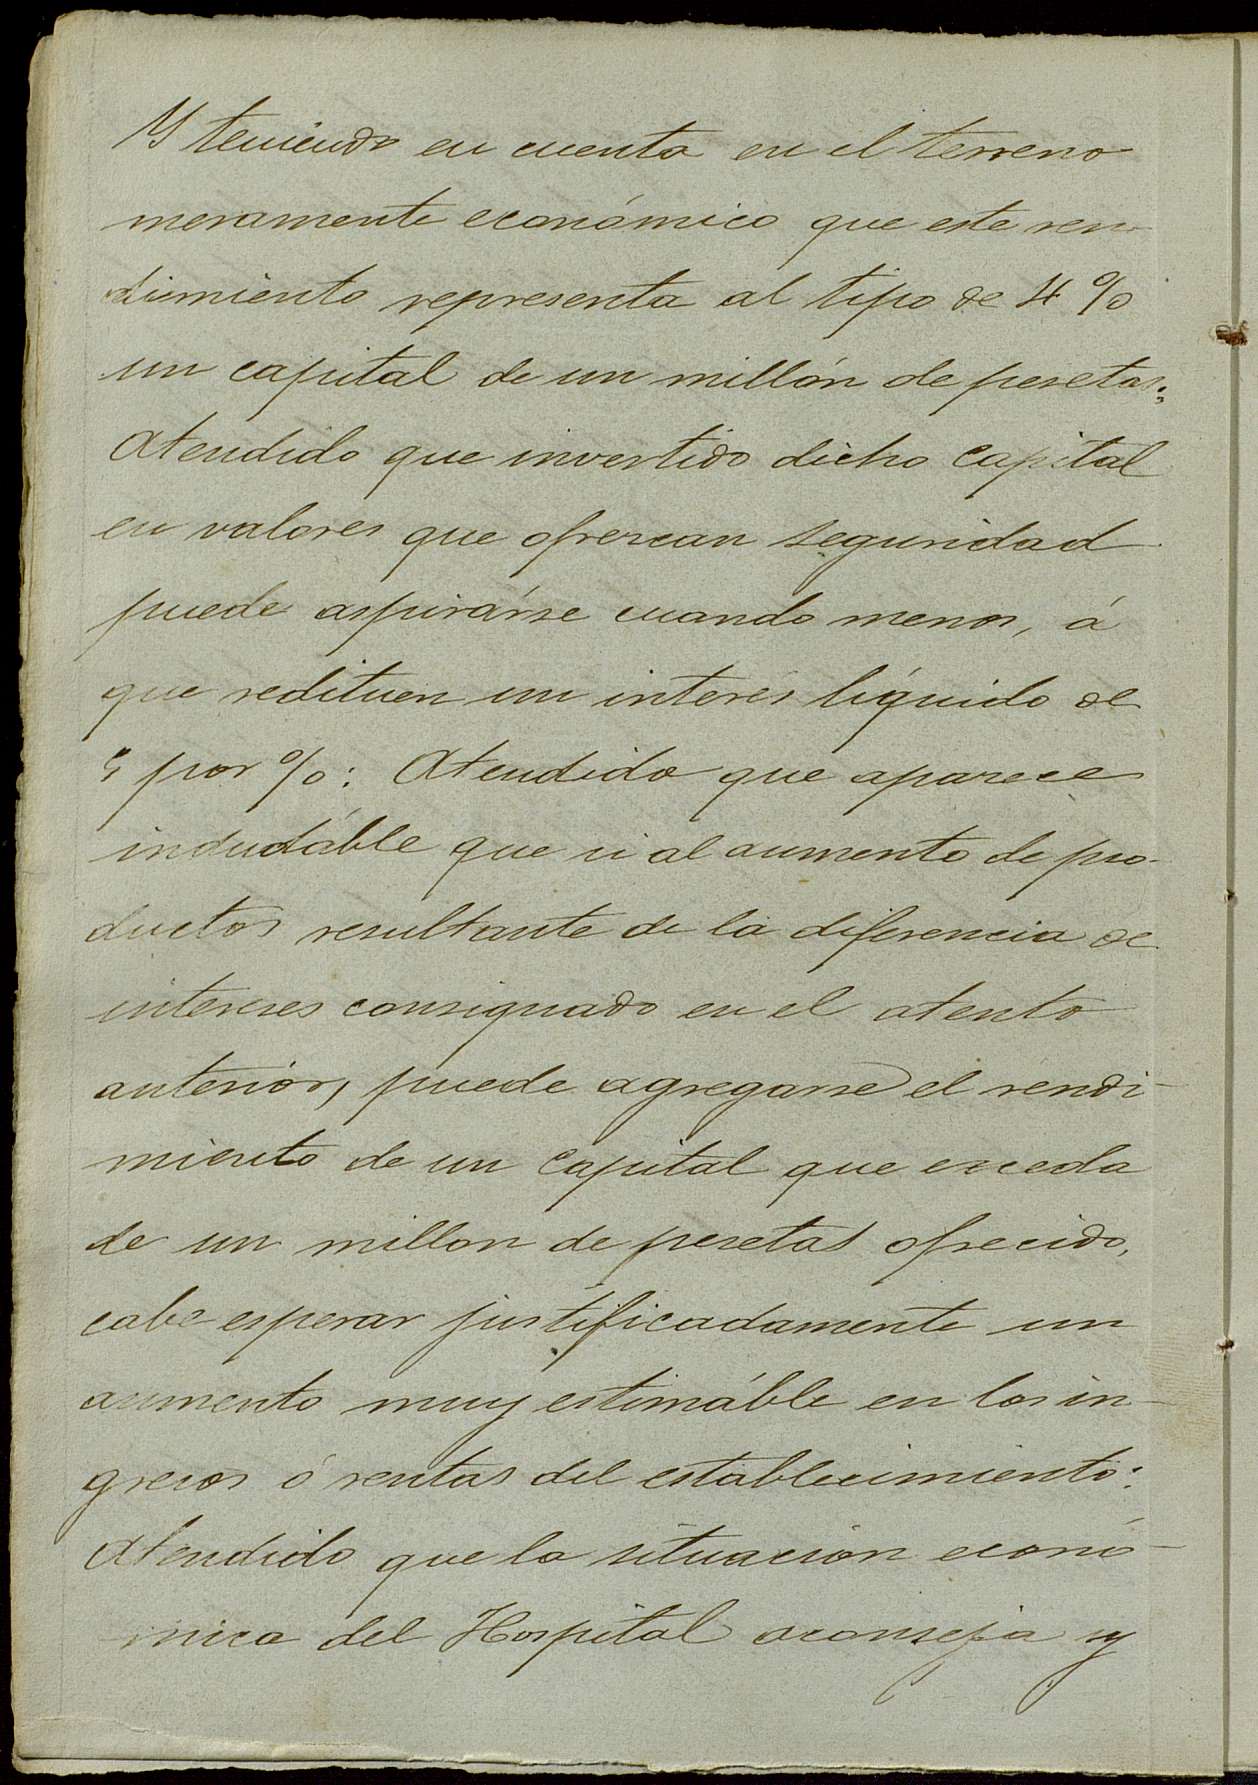 Y teniendo en cuenta en el terreno
meramente económico que este ren-
dimiento representa al tipo de 4 %
un capital de un millón de pesetas:
Atendido que invertido dicho capital
en valores que ofrezcan seguridad
puede aspirárse cuando menos, á
que redituen un interés líquido de
5 por %: Atendido que aparece
indudáble que si al aumento de pro-
ductos resultante de la diferencia de
intereses consignado en el atento
anterior, puede agregarse el rendi-
miento de un capital que exceda
de un millon de pesetas ofrecido,
cabe esperar justificadamente un
aumento muy estimáble en los in-
gresos ó rentas del establecimiento:
Atendido que la situación econó-
mica del Hospital aconseja y